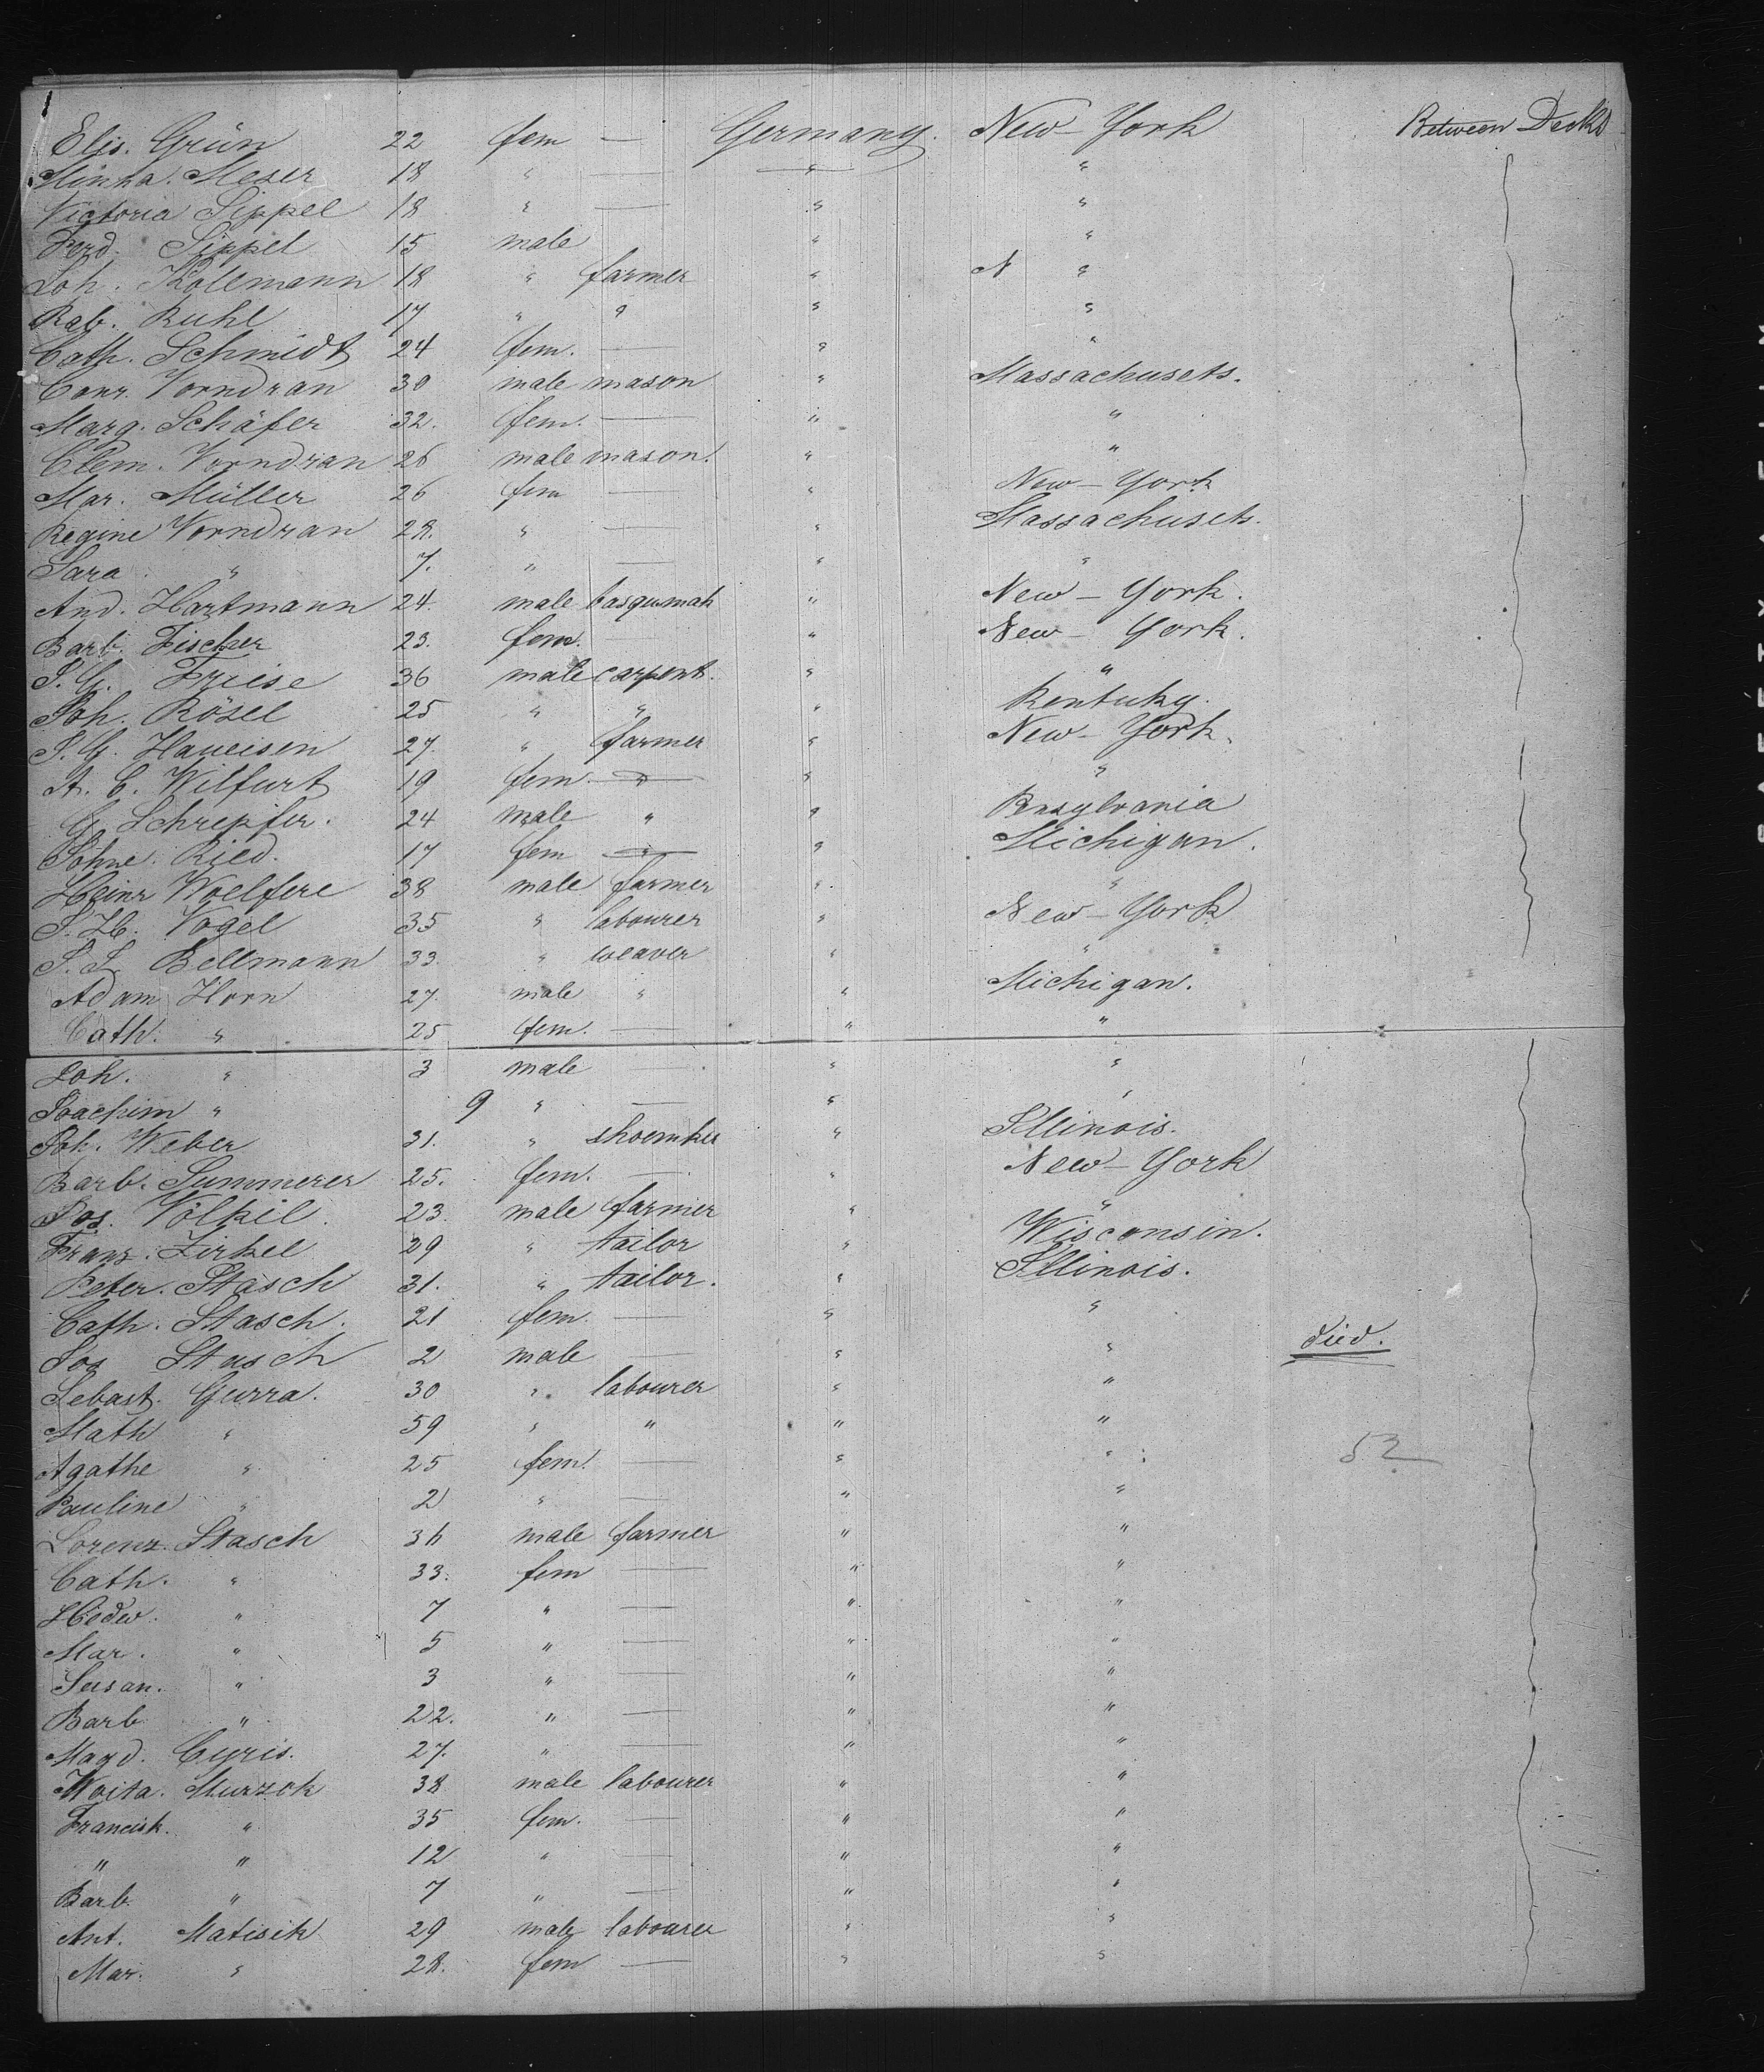 Elis. Grün 22 fem — Germany. New-York Between Decks
Minha. Meser 18 " — " "
Victoria Sippel 18 " — " "
Ferd. Sippel 15 male " "
Joh. Kollmann 18 " farmer " N "
Rab. Ruhl 17 " " " "
Cath. Schmidt 24 fem. — " "
Conr. Vorndran 30 male mason " Massachusets.
Marg. Schäfer 32. fem. — " "
Clem. Vorndran 26 male mason. " "
Mar. Müller 26 fem — " New-York
Regine Vorndran 28. " — " Massachusets.
Sara " 7. " — " "
And. Hartmann 24. male " New-York.
Barb. Fischer 23. fem. — " New-York.
J. G. Friese 36 male carpent. " "
Joh. Rösel 25 " " " Kentuky.
J. G. Haueisen 27. " farmer " New-York.
A. C. Wilfurt 19 fem. — " "
G. Schrepfer. 24 male " " Pensylvania
Ried. 17 fem — " Michigan.
Heinr Woelfere 38 male farmer " "
J. H. Vogel 35 " labourer " New-York
J. J. Bellmann 33. " weaver " "
Adam Horn 27. male " " Michigan.
Cath. " 25 fem. — " "
Joh. " 3 male — " "
Joachim " 9 " — " "
Joh. Weber 31. " shoemker " Illinois.
Barb. Summerer 25. fem. — " New-York
Jos. Völkil. 23. male farmer " "
Franz. Zirkel 29 " tailor " Wisconsin.
Peter. Stasch 31. " tailor. " Illinois.
Cath. Stasch. 21 fem. — " "
Jos Stasch 2 male — " " died.
Sebast. Gurra. 30 " labourer " "
Math " 59 " " " "
Agathe " 25 fem. — " " 52
Pauline " 2 " — " "
Lorenz. Stasch 36 male farmer " "
Cath. " 33. fem — " "
Hedw. " 7 " — " "
Mar. " 5 " — " "
Susan. " 3 " — " "
Barb " 22. " — " "
Magd. Cyris. 27. " — " "
Woita. Murzok 38 male labourer " "
Francisk. " 35 fem. — " "
" " 12 " — " "
Barb. " 7 " — " "
Ant. Matisik 29 male labourer " "
Mar. " 28. fem — " "